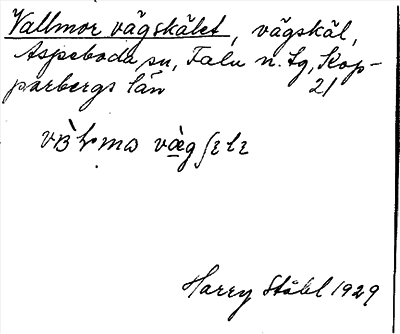 Vallmor vägskälet, vägskäl,
Aspeboda sn, Falu n. tg, Kop-
parbergs län 21
Harry Ståhl 1929